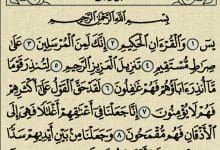 بِسْمِ اللَّهِ الرَّحْمَٰنِ الرَّحِيمِ
يسٓ ١ وَالْقُرْءَانِ الْحَكِيمِ ٢ إِنَّكَ لَمِنَ الْمُرْسَلِينَ ٣ عَلَىٰ
صِرَاطٍ مُّسْتَقِيمٍ ٤ تَنزِيلَ الْعَزِيزِ الرَّحِيمِ ٥ لِتُنذِرَ قَوْمًا
مَّآ أُنذِرَ ءَابَآؤُهُمْ فَهُمْ غَٰفِلُونَ ٦ لَقَدْ حَقَّ الْقَوْلُ عَلَىٰٓ أَكْثَرِهِمْ
فَهُمْ لَا يُؤْمِنُونَ ٧ إِنَّا جَعَلْنَا فِىٓ أَعْنَٰقِهِمْ أَغْلَٰلًا فَهِىَ إِلَى
الْأَذْقَانِ فَهُم مُّقْمَحُونَ ٨ وَجَعَلْنَا مِنۢ بَيْنِ أَيْدِيهِمْ سَدًّا